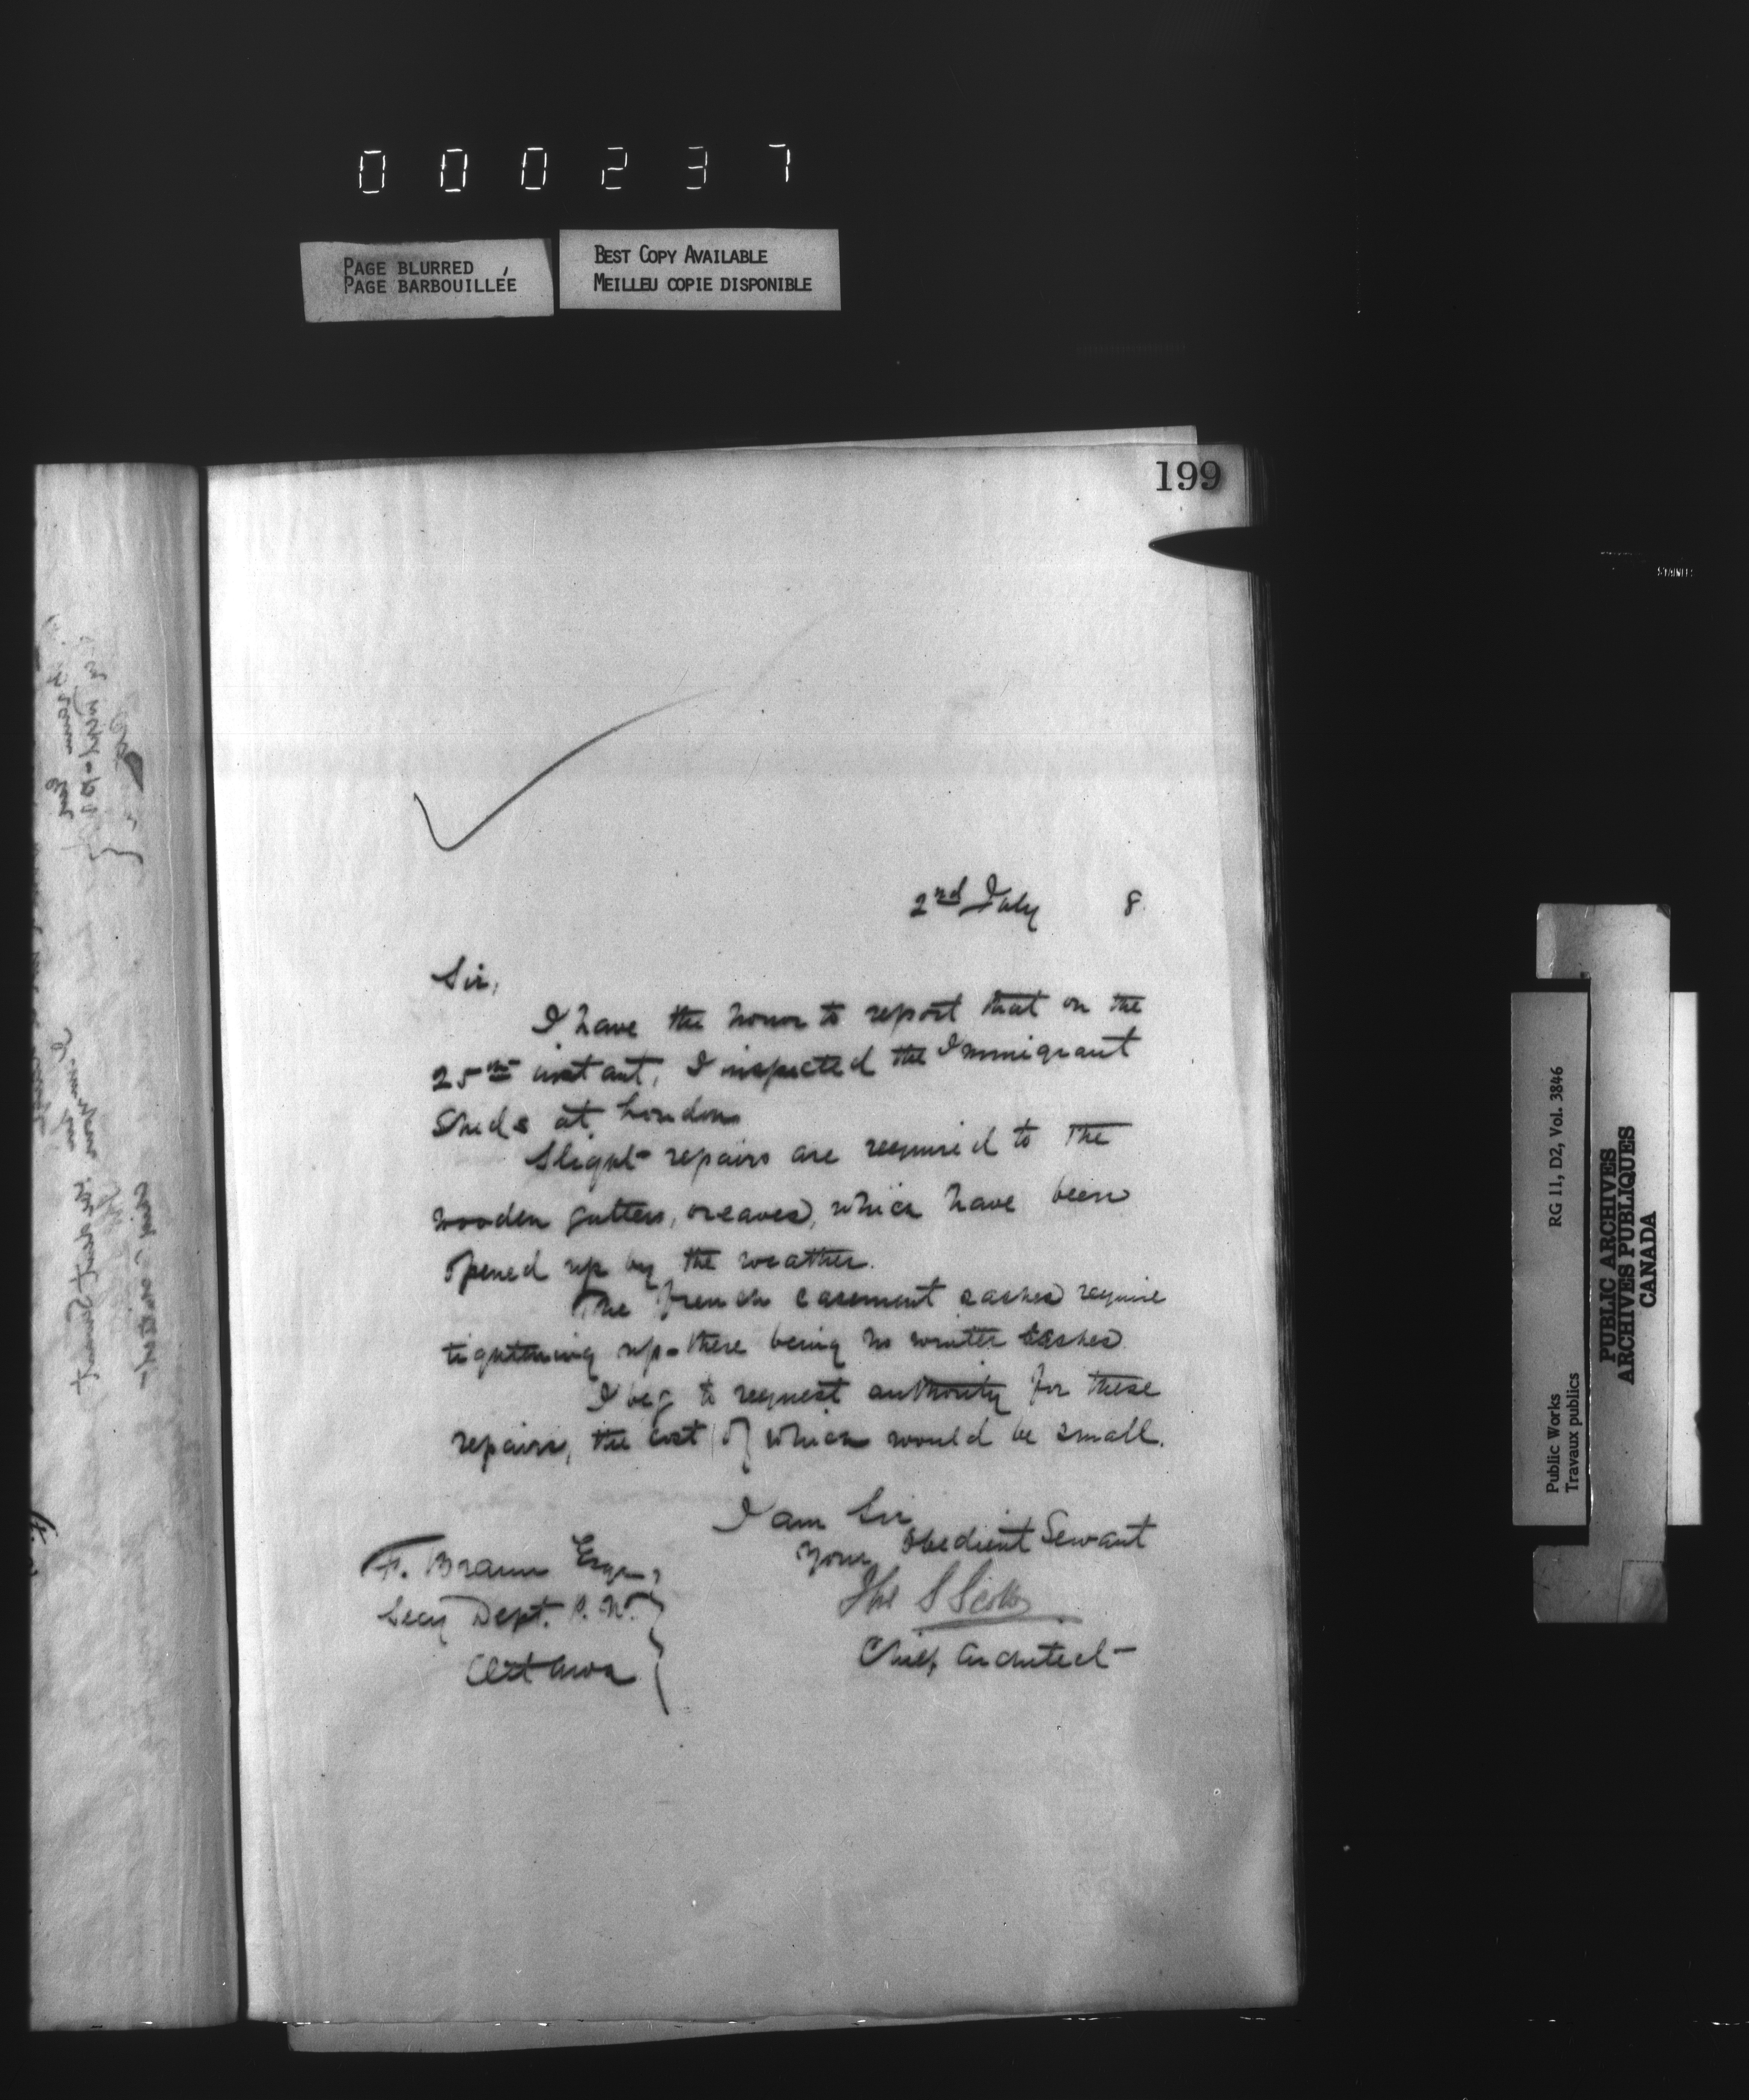 000237
PAGE BLURRED
PAGE BARBOUILLÉE
BEST COPY AVAILABLE
MEILLEU COPIE DISPONIBLE
199
2nd July 8
Sir,
I have the honor to report that on the
25th instant, I inspected the Immigrant
Sheds at London
Slight repairs are required to the
wooden gutters, or eaves, which have been
opened up by the weather.
The french casement sashes require
tightening up - there being no winter sashes
I beg to request authority for these
repairs, the cost of which would be small.
I am Sir
Your Obedient Servant
Tho S Scott
Chief Architect
F. Braun Esqr,
Secy Dept. P. W.
Ottawa
RG 11, D2, Vol. 3846
Public Works
Travaux publics
PUBLIC ARCHIVES
ARCHIVES PUBLIQUES
CANADA